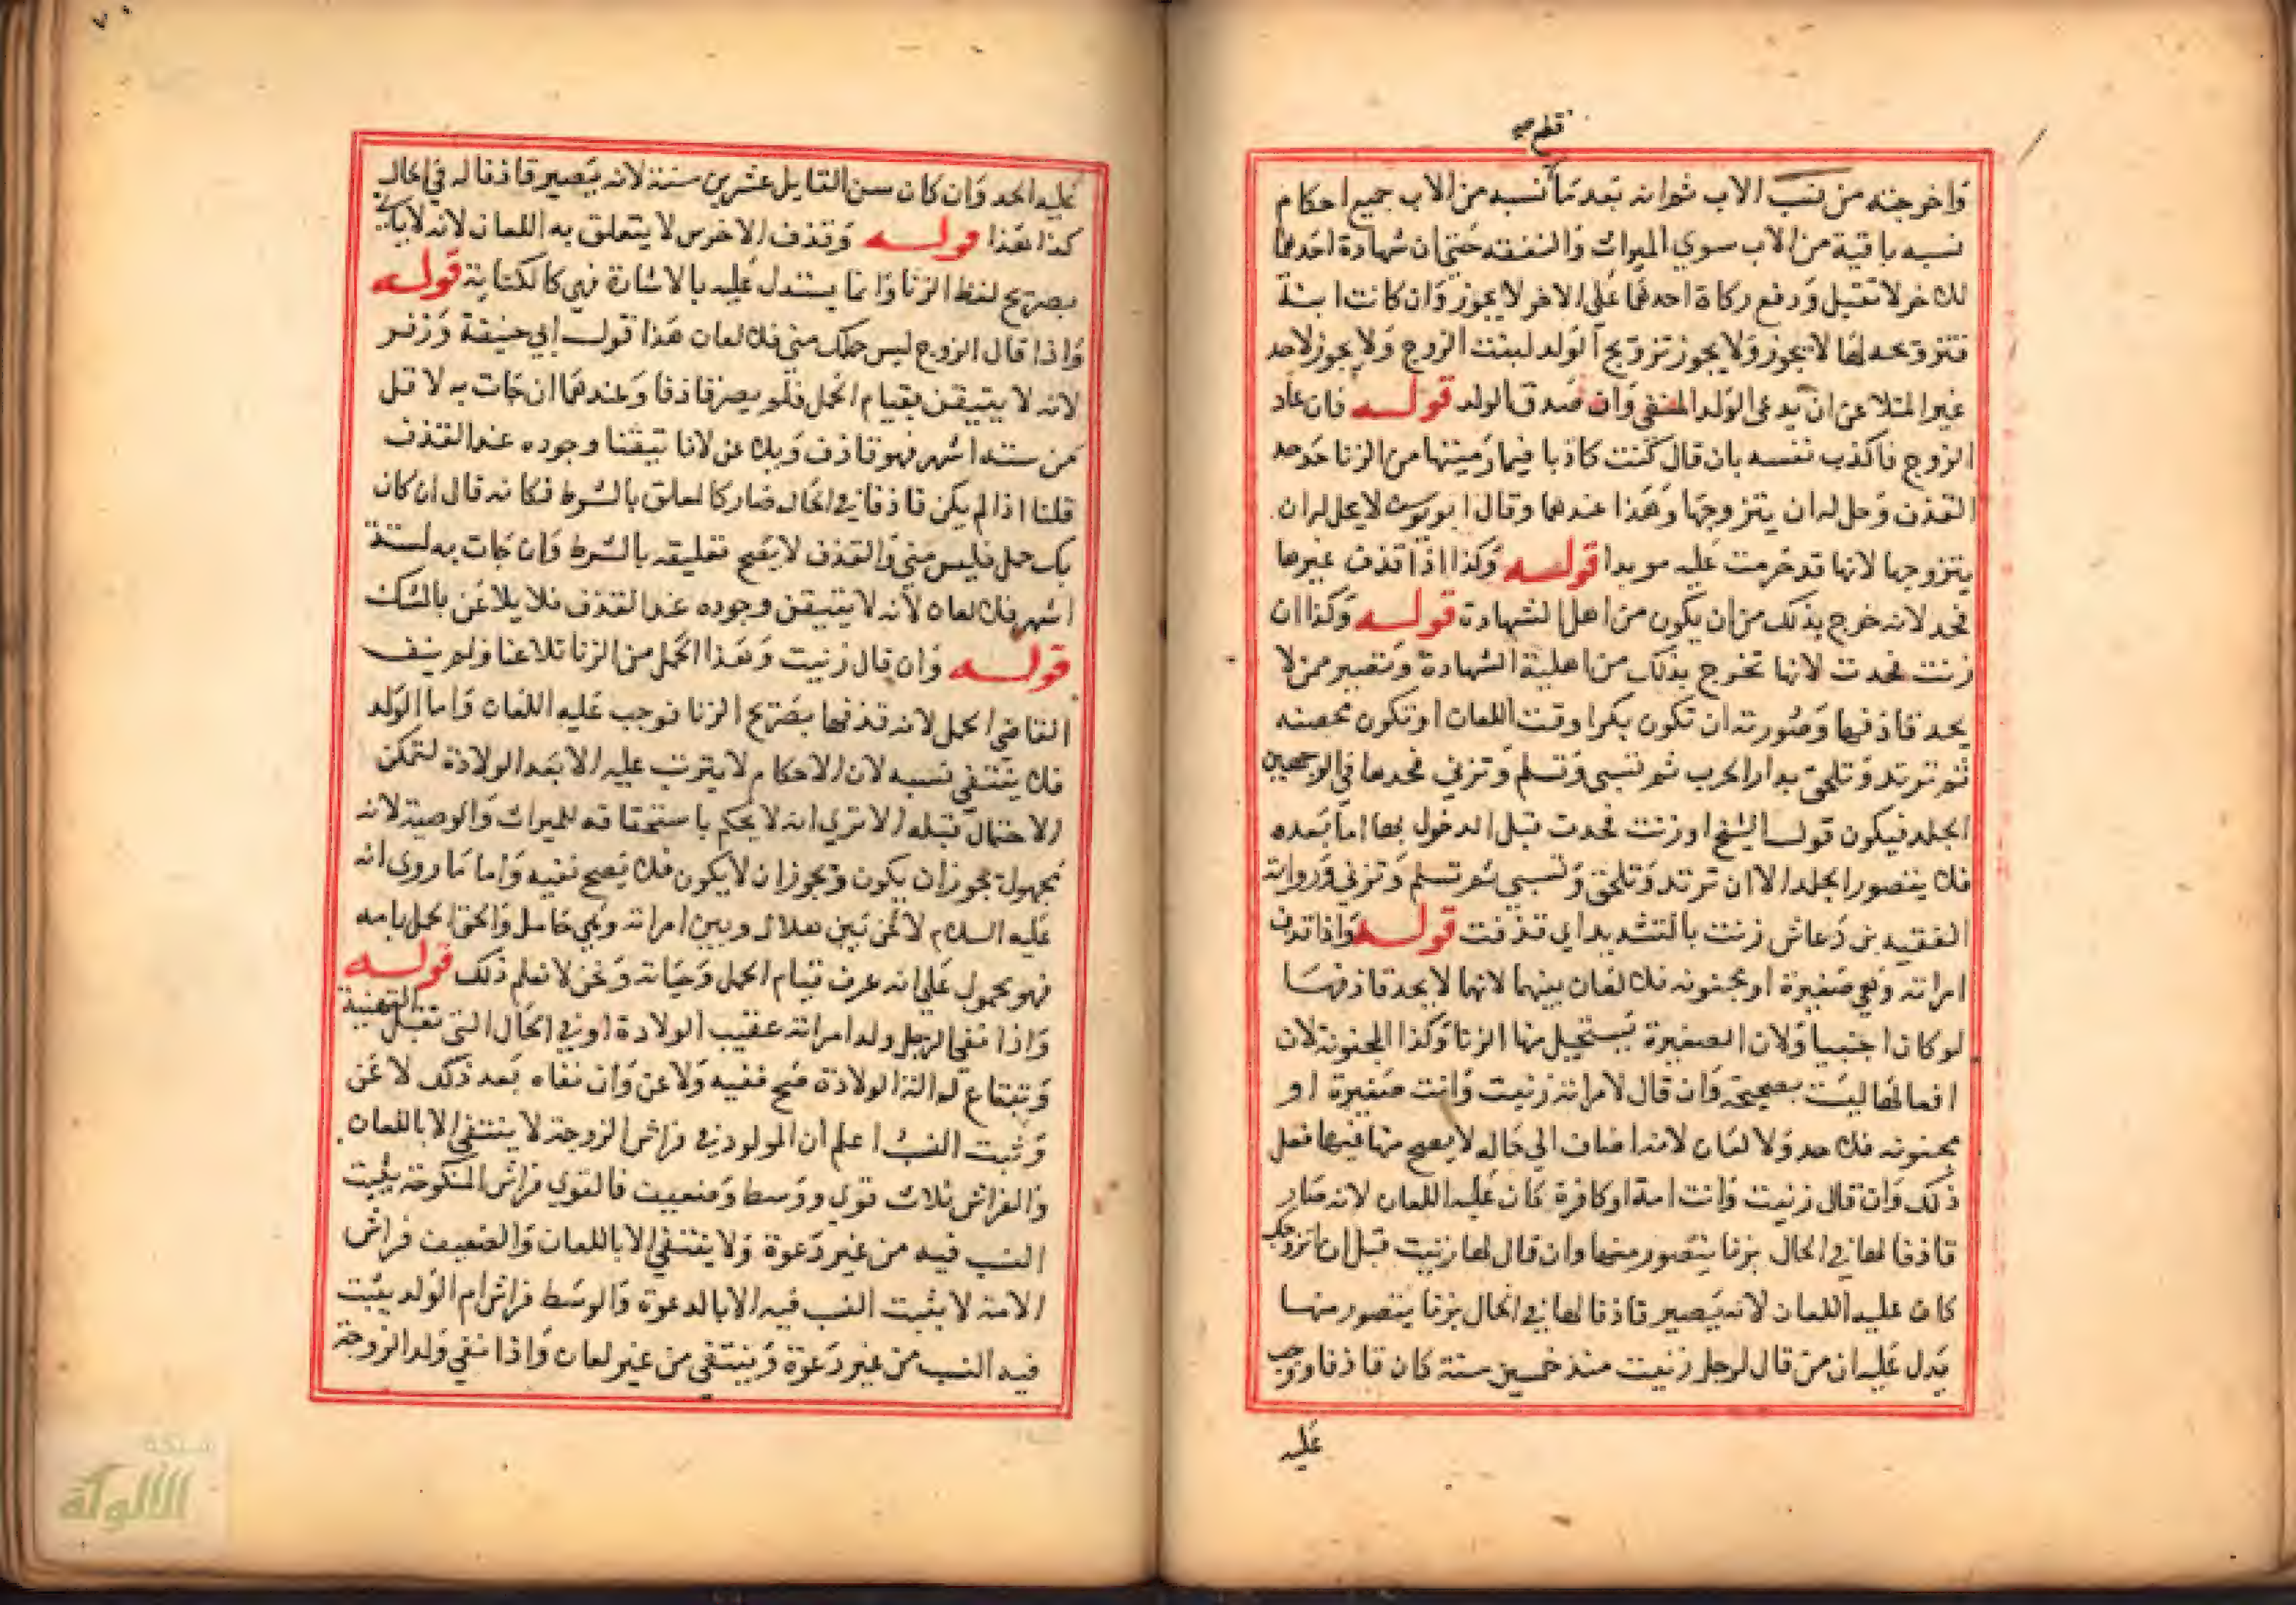 قطع صح
واخرجته من نسب الاب ثم انه بعد ما نسبه من الاب جميع احكام
نسبه باقية من الاب سوي الميراث والنفقة حتي ان شهادة احدهما
للاخر لا تقبل ودفع زكاة احدهما على الاخر لا يجوز وان كانت ابنة
فتزويجه لها لا يجوز ولا يجوز تزويج الولد لبنت الزوج ولا يجوز لاحد
غير المتلاعن ان يدعي الولد المنفي وان صدق الولد قولـه فان عاد
الزوج فاكذب نفسه بان قال كنت كاذبا فيما رميتها من الزنا حد حد
القذف وحل له ان يتزوجها وهذا عندهما وقال ابو يوسف لا يحل له ان
يتزوجها لانها قد حرمت عليه موبدا قولـه وكذا اذا قذف غيرها
فحد لانه خرج بذلك من ان يكون من اهل الشهادة قولـه وكذا ان
زنت فحدت لانها تخرج بذلك من اهلية الشهادة وتصير ممن لا
يحد قاذفها وصورته ان تكون بكرا وقت اللعان او تكون محصنه
ثم ترتد وتلحق بدار الحرب ثم تسبى وتسلم وتزني فحدها في الوجهين
الجلد فيكون قول الشيخ او زنت فحدت قبل الدخول بها اما بعده
فلا يتصور الجلد الا ان ترتد وتلحق وتسبي ثم تسلم وتزني ورواية
الفقيه بن دعاش زنت بالتشديد اي قذفت قولـه واذا قذف
امراته وهي صغيرة او مجنونه فلا لعان بينهما لانها لا يحد قاذفها
لو كان اجنبيا ولان الصغيرة يستحيل منها الزنا وكذا المجنونة لان
افعالها ليست بصحيحة وان قال لامراته زنيت وانت صغيرة او
مجنونه فلا حد ولا لعان لانه اضاف الي حاله لا يصح منها فيها فعل
ذلك وان قال زنيت وانت امة او كافرة كان عليه اللعان لانه صار
قاذفا لها في الحال بزنا يتصور منها وان قال لها زنيت قبل ان اتزوجك
كان عليه اللعان لانه يصير قاذفا لها في الحال بزنا يتصور منها
يدل عليه ان من قال لرجل زنيت منذ خمسين سنة كان قاذفا ووجب
عليه
عليه الحد وان كان سن القايل عشرين سنة لانه يصير قاذفا له في الحال
كذا هذا قولـه وقذف الاخرس لا يتعلق به اللعان لانه لا ياتي
بصريح لفظ الزنا وانما يستدل عليه بالاشارة فهي كالكتابة قولـه
واذا قال الزوج ليس حملك مني فلا لعان هذا قول ابي حنيفة وزفر
لانه لا يتيقن بقيام الحمل فلم يصر قاذفا وعندهما ان جات به لاقل
من ستة اشهر فهو قاذف ويلاعن لانا تيقنا وجوده عند القذف
قلنا اذا لم يكن قاذفا في الحال صار كالمعلق بالشرط فكانه قال ان كان
بك حمل فليس مني والقذف لا يصح تعليقه بالشرط وان جات به لستة
اشهر فلا لعان لانه لا يتيقن وجوده عند القذف فلا يلاعن بالشك
قولـه وان قال زنيت وهذا الحمل من الزنا تلاعنا ولم ينف
القاضي الحمل لانه قذفها بصريح الزنا فوجب عليه اللعان واما الولد
فلا ينتفي نسبه لان الاحكام لا يترتب عليه الا بعد الولادة لتمكن
الاحتمال قبله الا تري انه لا يحكم باستحقاقه للميراث والوصية لانه
مجهول يجوز ان يكون ويجوز ان لا يكون فلا يصح نفيه واما ما روى انه
عليه السلام لاعن بين هلال وبين امراته وهي حامل والحق الحمل بامه
فهو محمول علي انه عرف قيام الحمل وحياته ونحن لا نعلم ذلك قولـه
واذا نفي الرجل ولد امراته عقيب الولادة او في الحال التي تقبل التهنية
وتبتاع له الة الولادة صح نفيه ولاعن وان نفاه بعد ذلك لاعن
وثبت النسب اعلم ان المولود في فراش الزوجة لا ينتفي الا باللعان
والفراش ثلاث قوي ووسط وضعيف فالقوي فراش المنكوحة يثبت
النسب فيه من غير دعوة ولا ينتفي الا باللعان والضعيف فراش
الامة لا يثبت النسب فيه الا بالدعوة والوسط فراش ام الولد يثبت
فيه النسب من غير دعوة وينتفي من غير لعان واذا نفي ولد الزوجة
شبكة
الألوكة